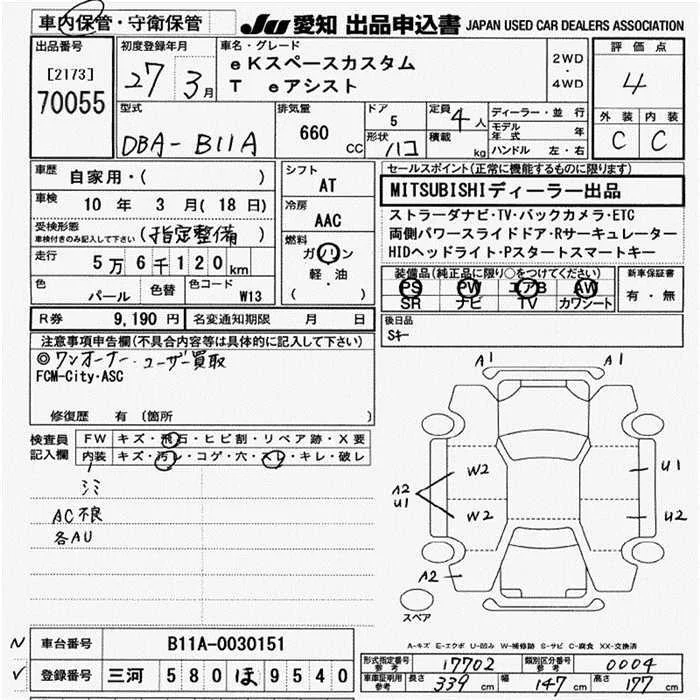 車内保管・守衛保管
JU 愛知 出品申込書 JAPAN USED CAR DEALERS ASSOCIATION
出品番号
[2173]
70055
初度登録年月
27 3月
車名・グレード
eKスペースカスタム
T eアシスト
2WD
・
4WD
評価点
4
外装 内装
C C
型式
DBA-B11A
排気量
660 cc
ドア
5
形状
ハコ
定員
4人
積載
kg
ディーラー・並行
モデル年式 年
ハンドル 左・右
車歴
自家用・( )
車検
10年 3月(18日)
受検形態
車検付きのみ記入して下さい
(指定整備)
走行
5万6千120km
色
パール
色替
色コード
W13
シフト
AT
冷房
AAC
燃料
ガソリン
軽・油
( )
セールスポイント(正常に機能するものに限ります)
MITSUBISHIディーラー出品
ストラーダナビ・TV・バックカメラ・ETC
両側パワースライドドア・Rサーキュレーター
HIDヘッドライト・Pスタートスマートキー
装備品(純正品に限り○をつけてください)
PS PW エアB AW
SR ナビ TV カワシート
新車保証書
有・無
R券 9,190円 名変通知期限 月 日
後日品
Sキー
注意事項申告欄(不具合内容等は具体的に記入して下さい)
◎ワンオーナー・ユーザー買取
FCM-City・ASC
修復歴 有 (箇所 )
検査員
記入欄
FW キズ・飛石・ヒビ割・リペア跡・X要
内装 キズ・汚レ・コゲ・穴・スレ・キレ・破レ
シミ
AC不良
各AU
A1 A1
W2 U1
A2
U1
W2 U2
A2
スペア
A-キズ E-エクボ U-凹み W-補修跡 S-サビ C-腐食 XX-交換済
車台番号 B11A-0030151
登録番号 三河 580 ほ 9540
形式指定番号
参考
17702
類別区分番号
参考
0004
車庫証明用
参考
長さ 339 cm 幅 147 cm 高さ 177 cm